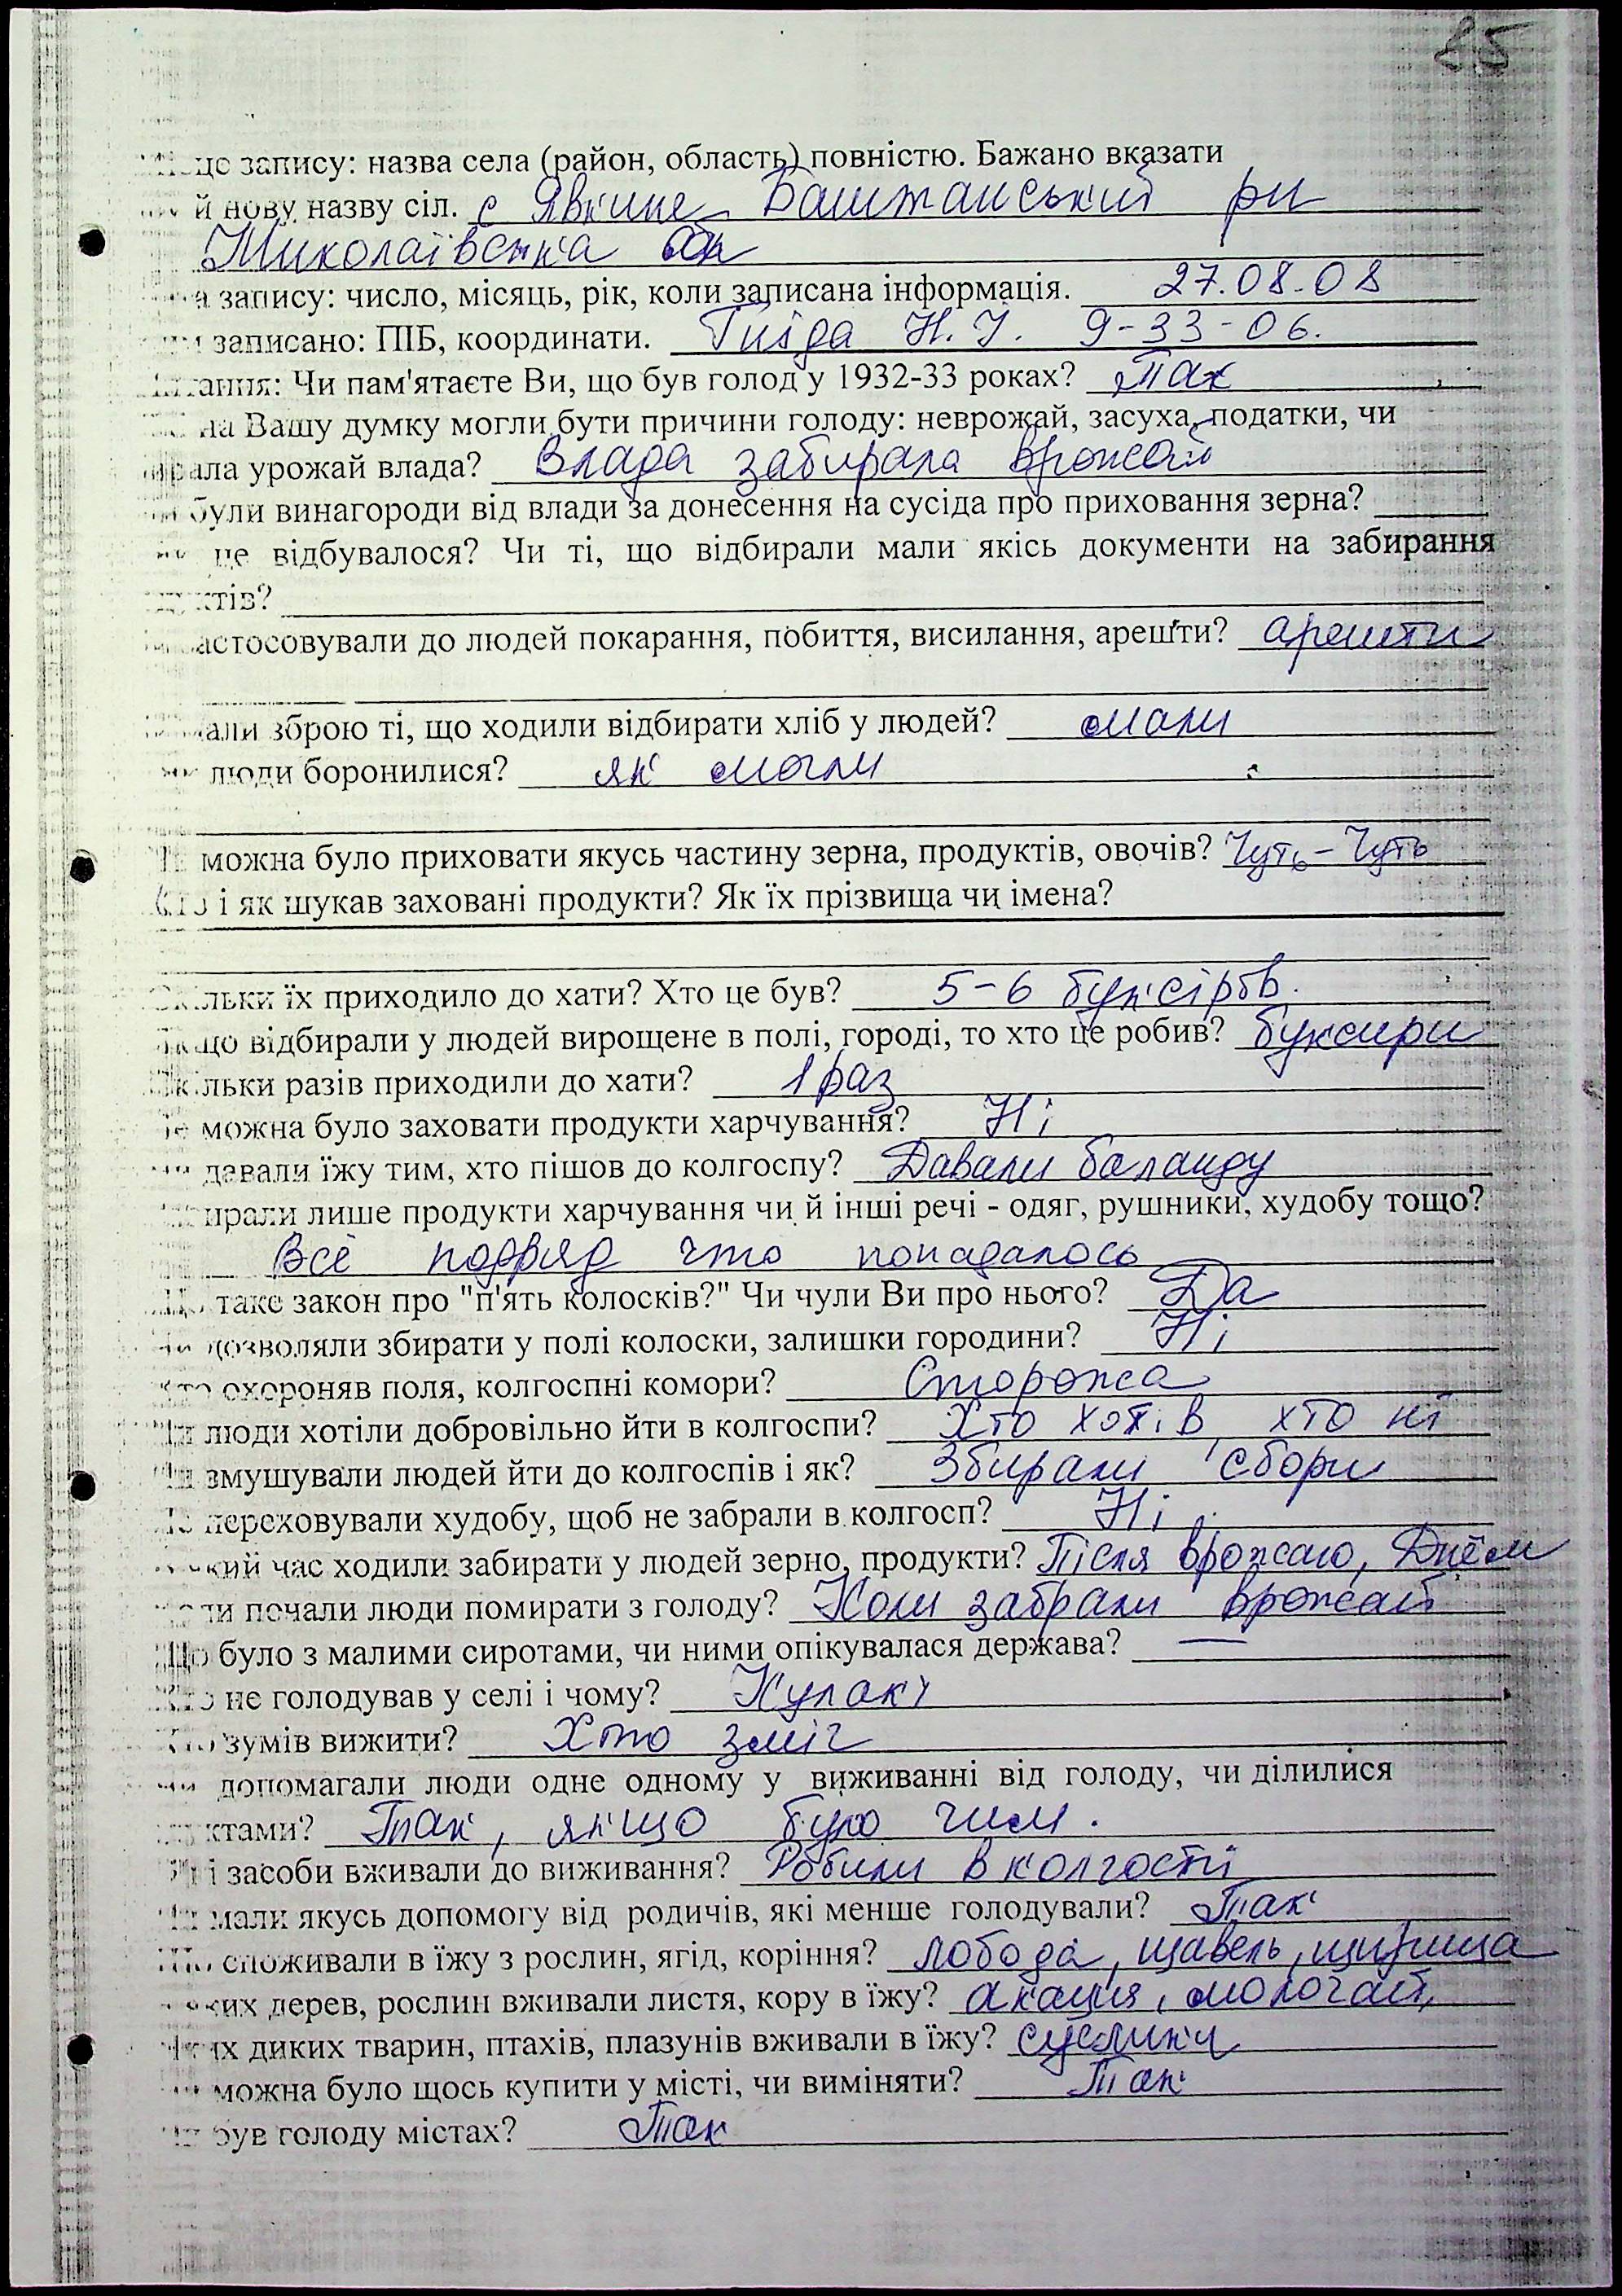 85
це запису: назва села (район, область) повністю. Бажано вказати
й нову назву сіл. с Явкине Баштанський рн
Миколаївська обл
а запису: число, місяць, рік, коли записана інформація. 27.08.08
записано: ПІБ, координати. Н.І. 9-33-06.
ання: Чи пам'ятаєте Ви, що був голод у 1932-33 роках? Так
на Вашу думку могли бути причини голоду: неврожай, засуха, податки, чи
рала урожай влада? Влада забирала врожай
були винагороди від влади за донесення на сусіда про приховання зерна?
це відбувалося? Чи ті, що відбирали мали якісь документи на забирання
ктів?
астосовували до людей покарання, побиття, висилання, арешти? арешти
али зброю ті, що ходили відбирати хліб у людей? мали
люди боронилися? як могли
можна було приховати якусь частину зерна, продуктів, овочів? Чуть-Чуть
Хто і як шукав заховані продукти? Як їх прізвища чи імена?
кільки їх приходило до хати? Хто це був? 5-6 буксірів.
кщо відбирали у людей вирощене в полі, городі, то хто це робив? буксири
кільки разів приходили до хати? 1 раз
е можна було заховати продукти харчування? Ні
давали їжу тим, хто пішов до колгоспу? Давали баланду
ирали лише продукти харчування чи й інші речі - одяг, рушники, худобу тощо?
Всё подряд что попадалось
Що таке закон про "п'ять колосків?" Чи чули Ви про нього? Да
дозволяли збирати у полі колоски, залишки городини? Ні
то охороняв поля, колгоспні комори? Сторожа
люди хотіли добровільно йти в колгоспи? Хто хотів, хто ні
змушували людей йти до колгоспів і як? Збирали сбори
переховували худобу, щоб не забрали в колгосп? Ні
кий час ходили забирати у людей зерно, продукти? Після врожаю, Днём
ли почали люди помирати з голоду? Коли забрали врожай
Що було з малими сиротами, чи ними опікувалася держава? —
то не голодував у селі і чому? Кулакі
зумів вижити? Хто зміг
допомагали люди одне одному у виживанні від голоду, чи ділилися
ктами? Так, якщо було чим.
і засоби вживали до виживання? Робили в колгоспі
мали якусь допомогу від родичів, які менше голодували? Так
Що споживали в їжу з рослин, ягід, коріння? лобода, щавель, щириця
ких дерев, рослин вживали листя, кору в їжу? акация, молочай,
их диких тварин, птахів, плазунів вживали в їжу? суслики
можна було щось купити у місті, чи виміняти? Так
був голоду містах? Так